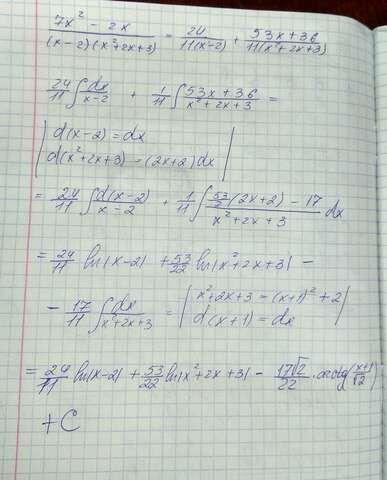 (7x² - 2x)/((x-2)(x²+2x+3)) = 24/(11(x-2)) + (53x+36)/(11(x²+2x+3))
24/11 ∫ dx/(x-2) + 1/11 ∫ (53x+36)/(x²+2x+3) =
| d(x-2) = dx
d(x²+2x+3) - (2x+2)dx |
= 24/11 ∫ d(x-2)/(x-2) + 1/11 ∫ (53/2 (2x+2) - 17)/(x²+2x+3) dx
= 24/11 ln|x-2| + 53/22 ln|x²+2x+3| -
- 17/11 ∫ dx/(x²+2x+3) = | x²+2x+3 = (x+1)²+2
d(x+1) = dx |
= 24/11 ln|x-2| + 53/22 ln|x²+2x+3| - 17√2/22 · arctg((x+1)/√2)
+ C